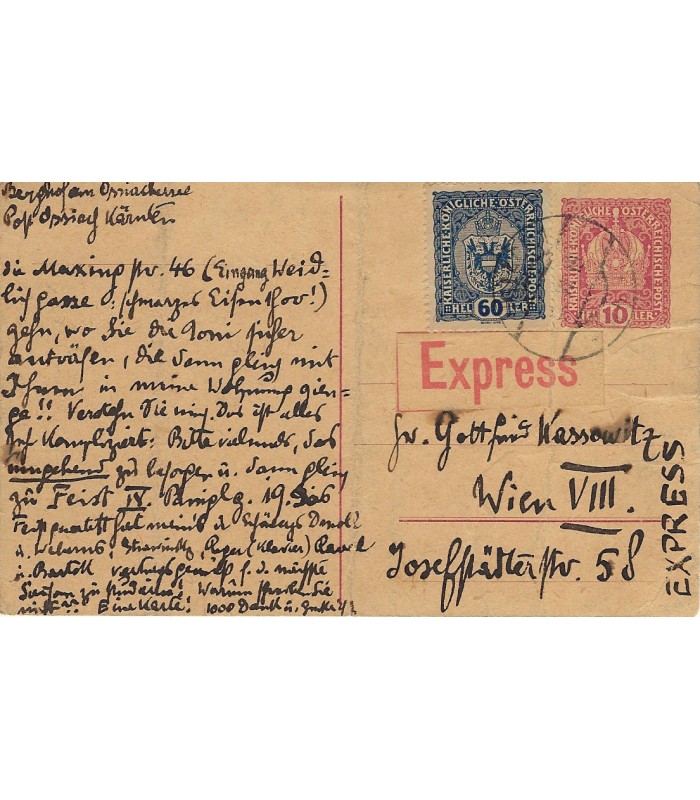 Berghof am Ossiachersee
Post Ossiach Kärnten
die Maxingstr. 46 (Eingang Weid-
lichgasse: schwarzes Eisenthor!)
gehn, wo Sie die Toni sicher
anträfen, die dann gleich mit
Ihnen in meine Wohnung gien-
ge!! Verstehn Sie mich. Das ist alles
sehr kompliziert. Bitte vielmals, das
umgehend zu besorgen u. dann gleich
zu Feist IX. Pramglg. 19. bis
Feistquartett hat meins
u. Weberns! Strawinsky, Reger (Klavier) Ravel
u. Bartók f. d. nächste
Saison zu studieren! Warum schreiben Sie
nicht!! Eine Karte! 1000 Dank u.
KAISERLICHE KÖNIGLICHE ÖSTERREICHISCHE POST
HELLER 60
KAISERLICHE KÖNIGLICHE ÖSTERREICHISCHE POST
10 HELLER
Express
Hr. Gottfried Kassowitz
Wien VIII.
Josefstädterstr. 58
EXPRESS